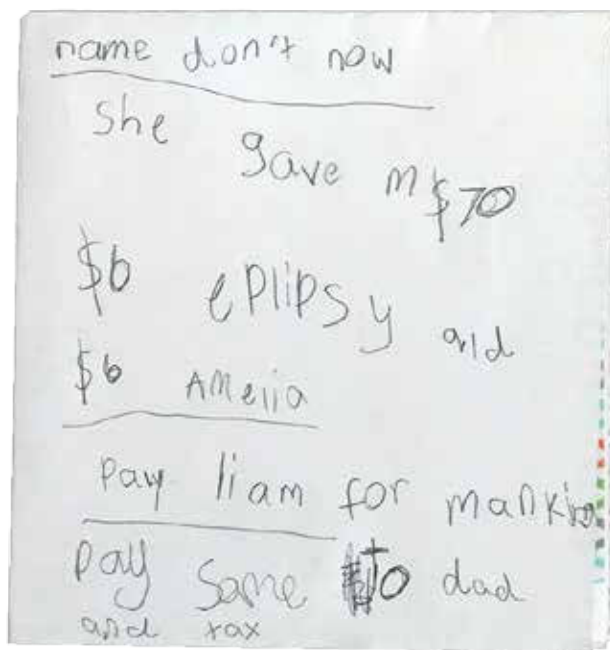 name don't now
She gave m $70
$6 eplipsy and
$6 Amelia
Pay liam for mankin
Pay Same to dad
and tax